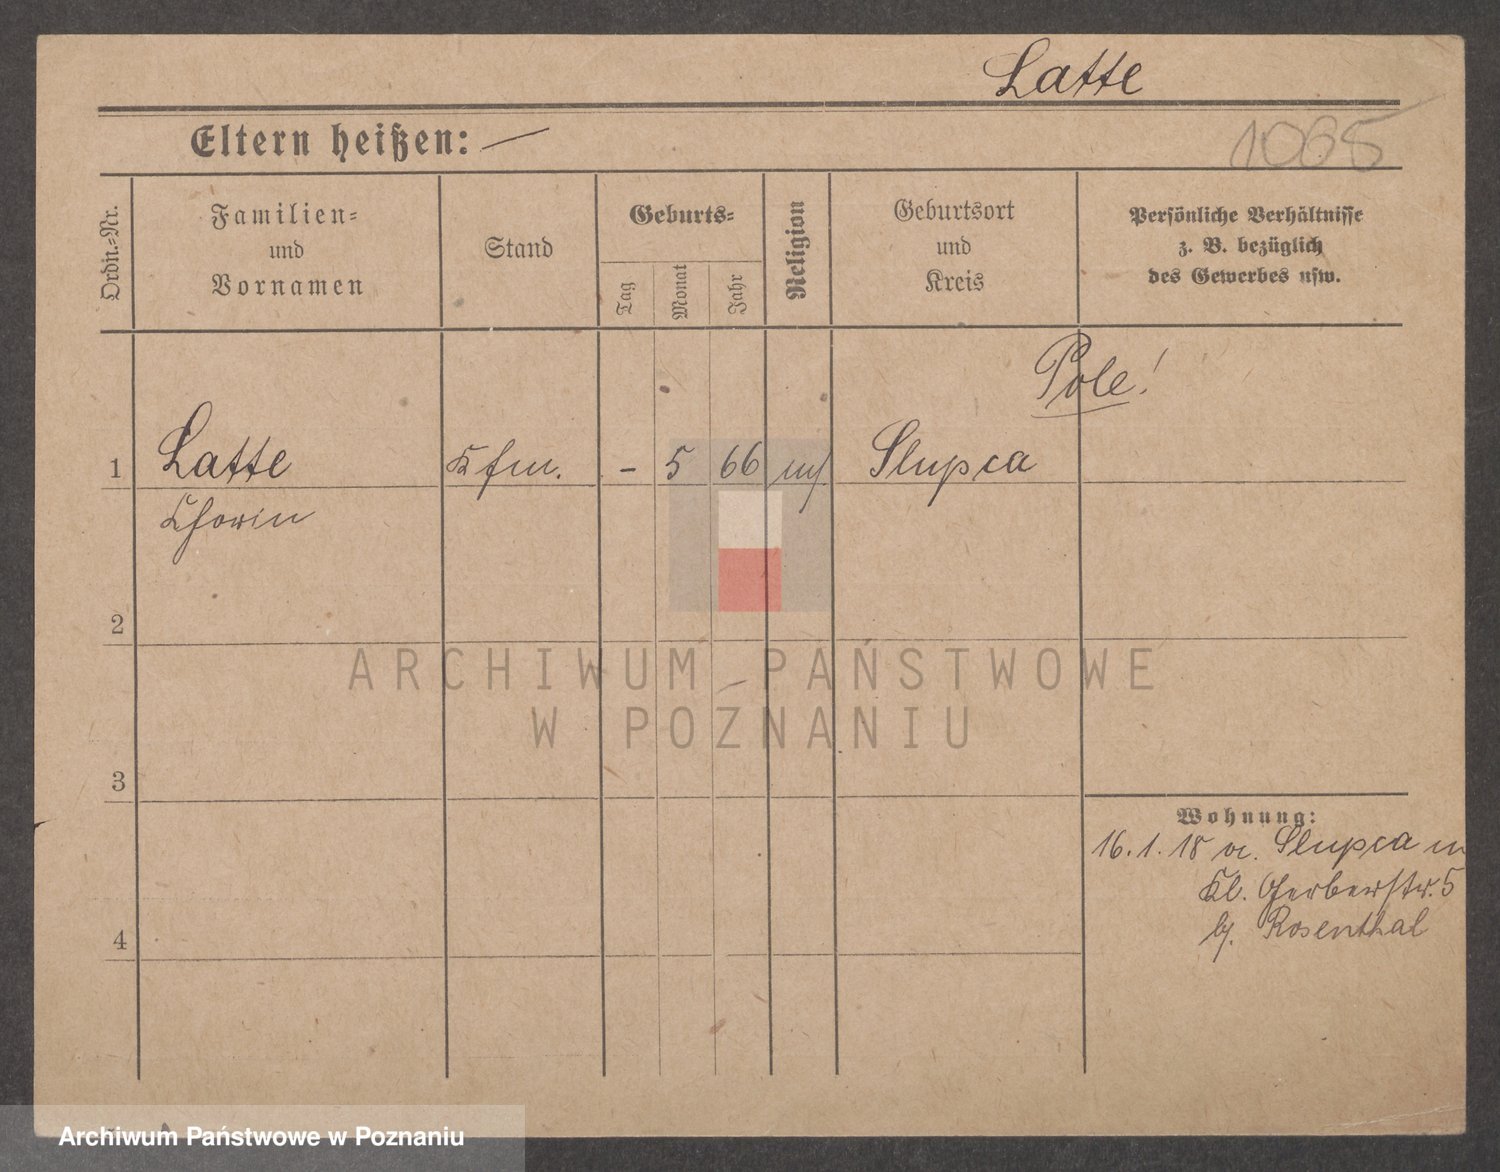 Latte
Eltern heißen: —
1065
Ordn.=Nr.
Familien=
und
Vornamen
Stand
Geburts=
Tag
Monat
Jahr
Religion
Geburtsort
und
Kreis
Persönliche Verhältnisse
z. B. bezüglich
des Gewerbes usw.
Pole!
1 Latte Kfm. – 5 66 Slupca
Chorin
2
3
4
Wohnung:
16.1.18 Slupca
Kl. Gerberstr. 5
Rosenthal
ARCHIWUM PAŃSTWOWE
W POZNANIU
Archiwum Państwowe w Poznaniu